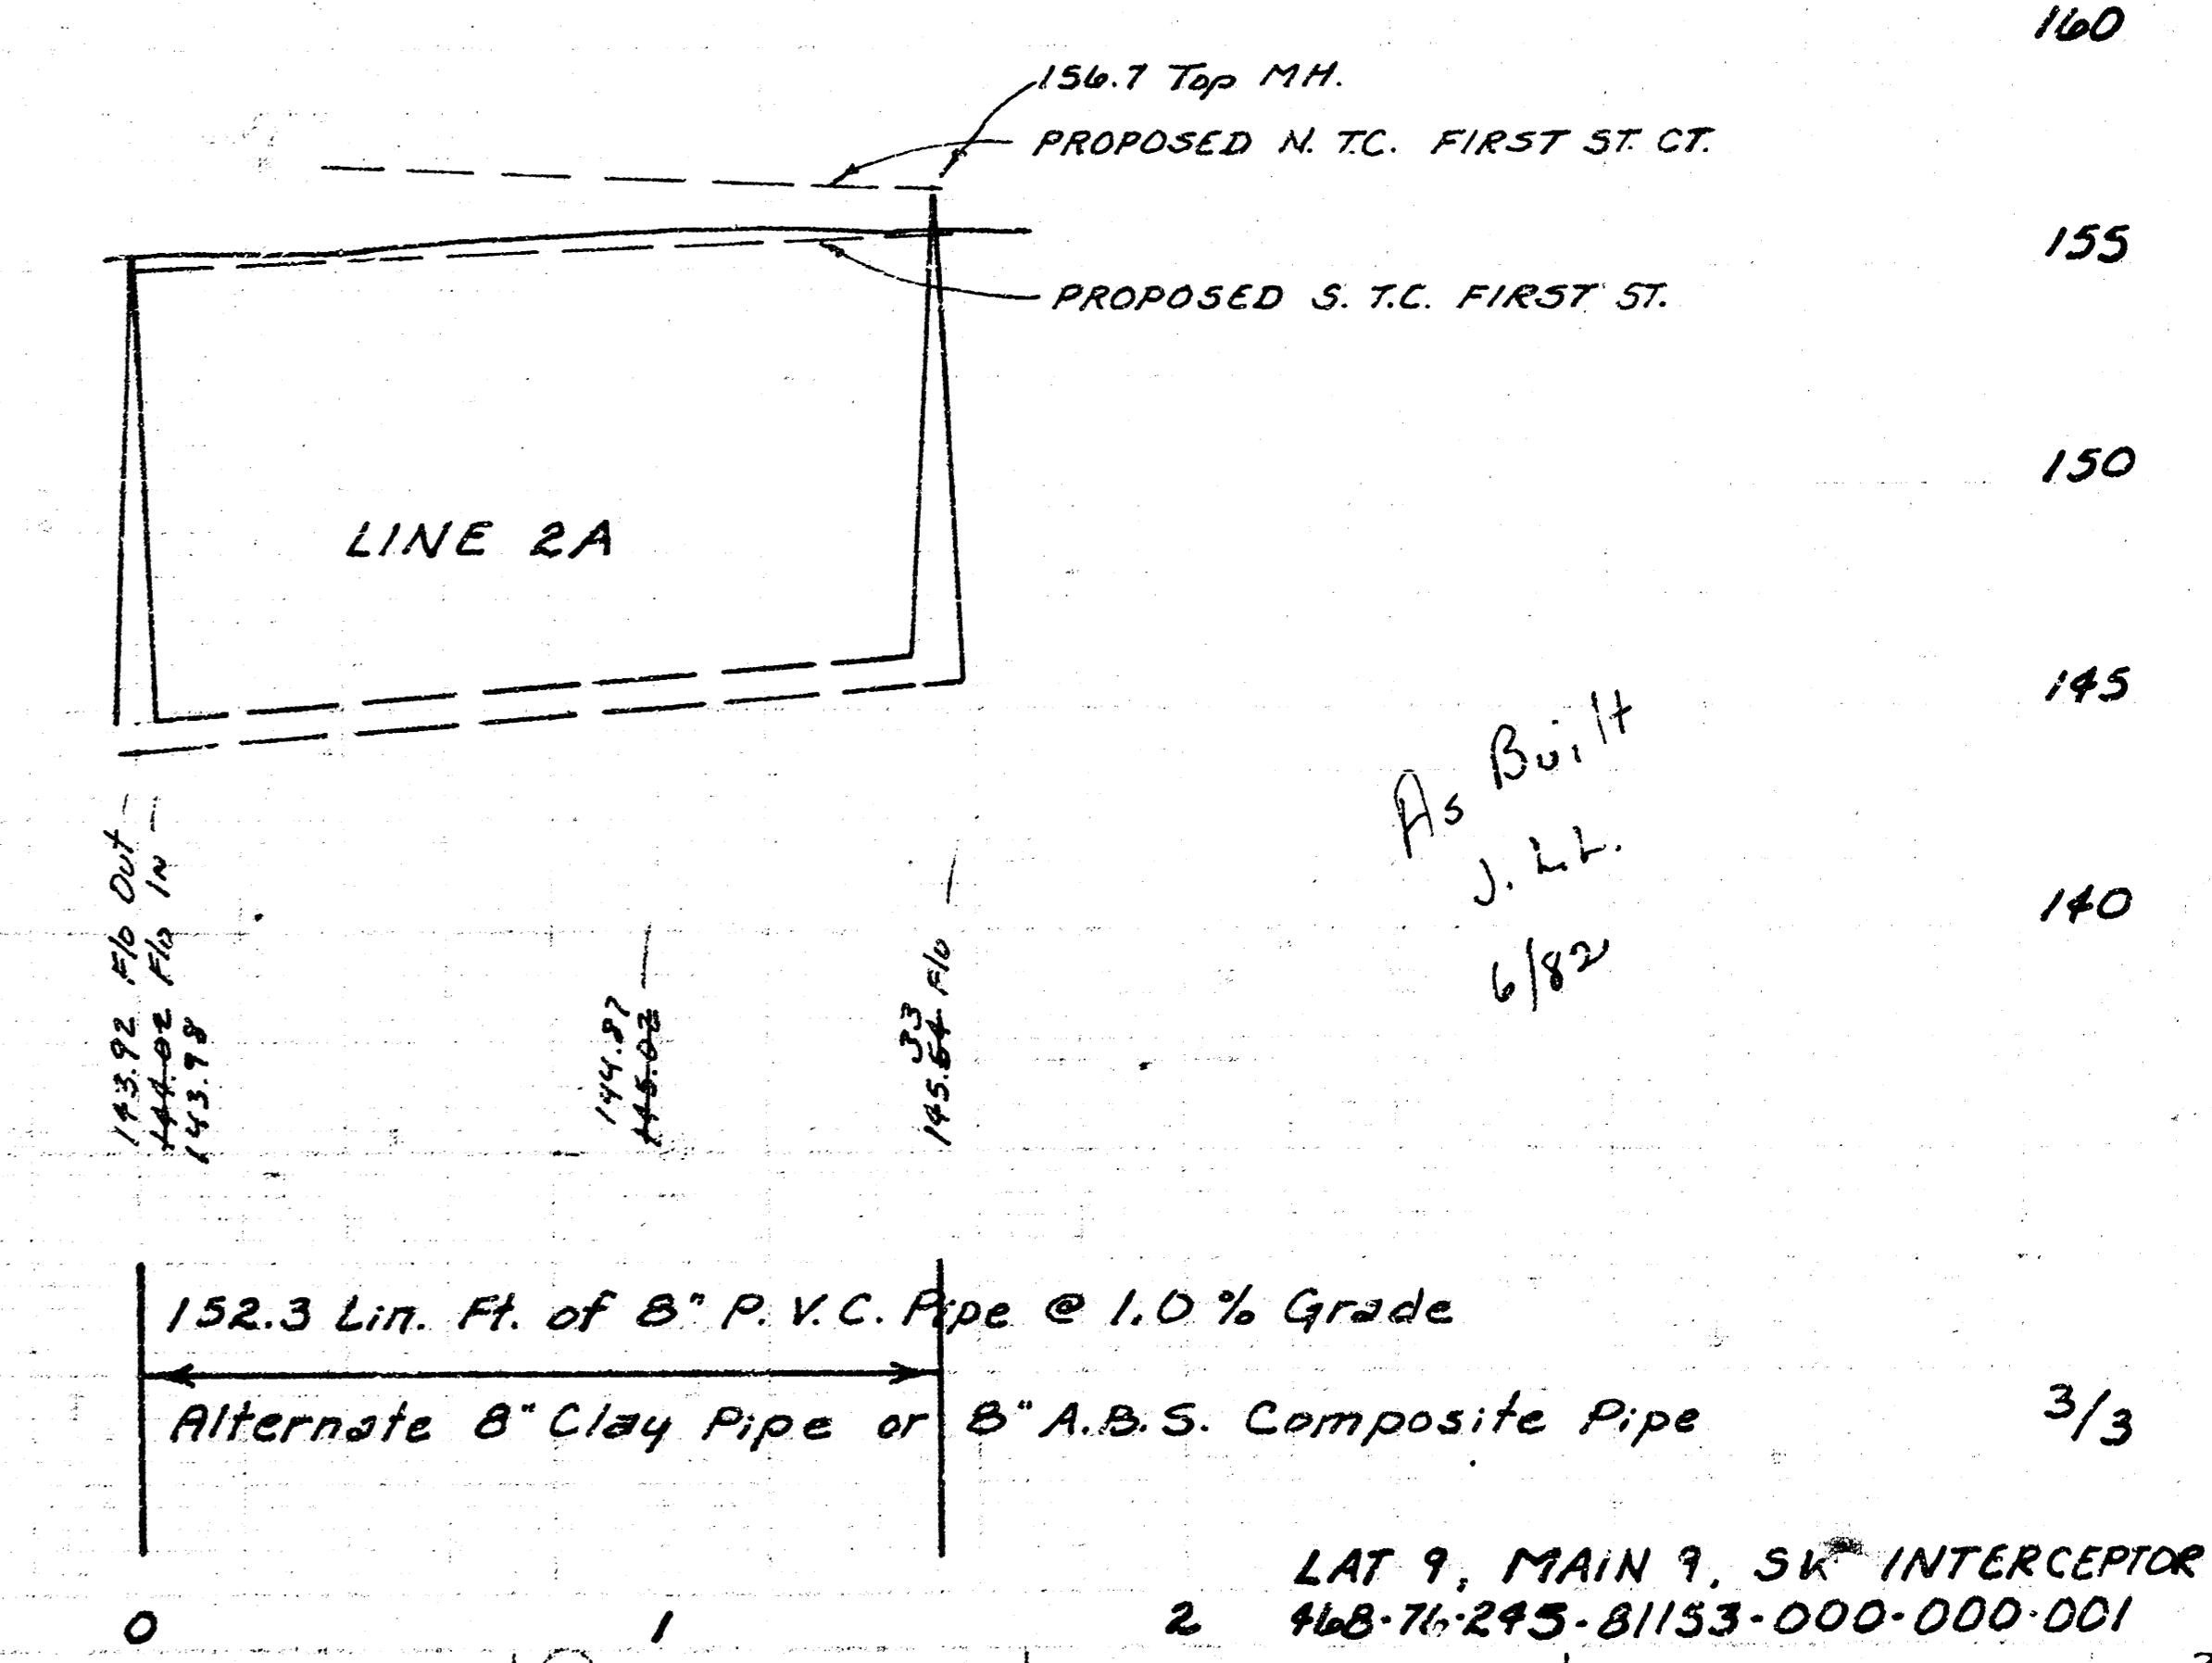 160
156.7 Top MH.
PROPOSED N. T.C. FIRST ST. CT.
155
PROPOSED S. T.C. FIRST ST.
150
LINE 2A
145
As Built
J. L.L.
6/82
140
143.92 Flo Out
144.02 Flo IN
143.98
144.87
145.02
33
145.64 Flo
152.3 Lin. Ft. of 8" P.V.C. Pipe @ 1.0% Grade
Alternate 8" Clay Pipe or 8" A.B.S. Composite Pipe
3/3
LAT 9, MAIN 9, INTERCEPTOR
0 1 2 468-76-245-81153-000-000-001